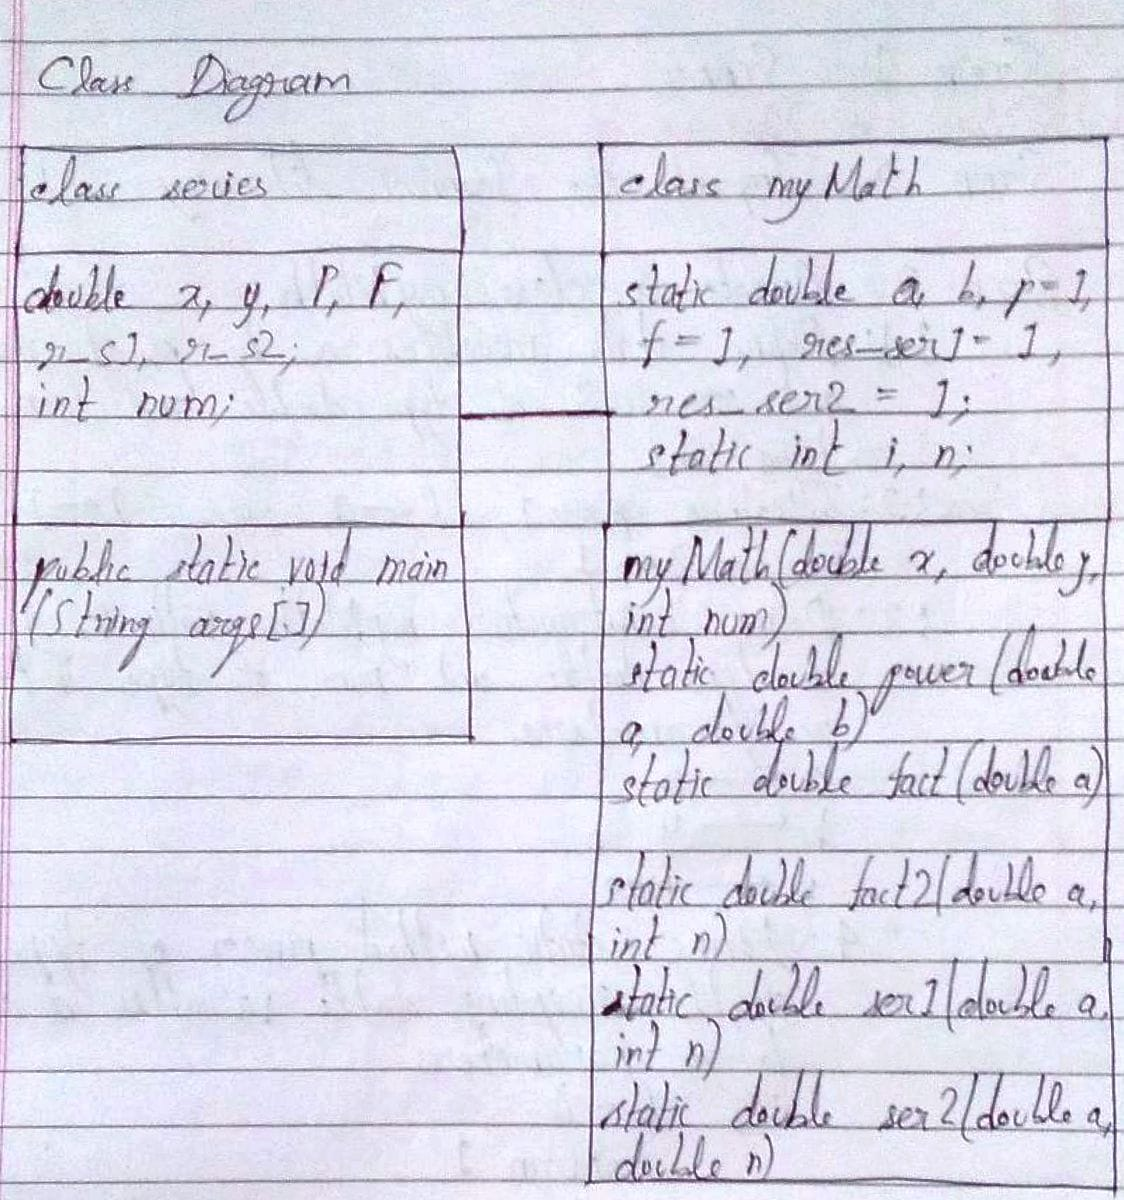 Class Diagram
class series
double x, y, P, F,
r_s1, r_s2;
int num;
public static void main
(String args[])
class myMath
static double a, b, p=1,
f = 1, res_ser1 = 1,
res_ser2 = 1;
static int i, n;
myMath(double x, double y,
int num)
static double power(double
a, double b)
static double fact(double a)
static double fact2(double a,
int n)
static double ser1(double a,
int n)
static double ser2(double a,
double n)